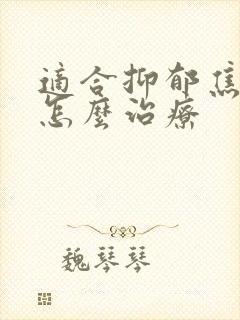 適合抑郁焦
怎麼治療
魏琴琴